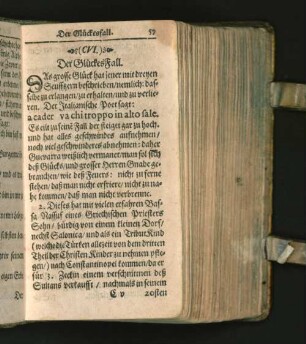 Der Glücksfall.
(CVI.)
Der GlücksFall.
DAs grosse Glück hat jener mit dreyen
Seufftzern beschrieben/nemlich: das-
selbe zu erlangen/zu erhalten/und zu verlie-
ren. Der Italianische Poet sagt:
a cader va chi troppo in alto sale.
Es eilt zu seinē Fall der steiget gar zu hoch.
und hat alles geschwindes aufnehmen/
noch viel geschwinderes abnehmen: daher
Guevarra weißlich vermanet/man sol sich
deß Glücks/und grosser Herren Gnade ge-
brauchen/wie deß Feuers: nicht zu ferne
stehen/daß man nicht erfriere/nicht zu na-
he kommen/daß man nicht verbrenne.
2. Dieses hat mit vielen erfahren Bas-
sa Nassuf eines Griechischen Priesters
Sohn/bürdig von einem kleinen Dorf
nechst Salonica/und als ein Tribut Kind
(welche die Türken allezeit von dem dritten
Theil der Christen Kinder zu nehmen pfle-
gen/) nach Constantinopel kommen/da er
für 3. Zeckin einem verschnittnen deß
Sultans verkaufft/nachmals in seinem
E v
20sten